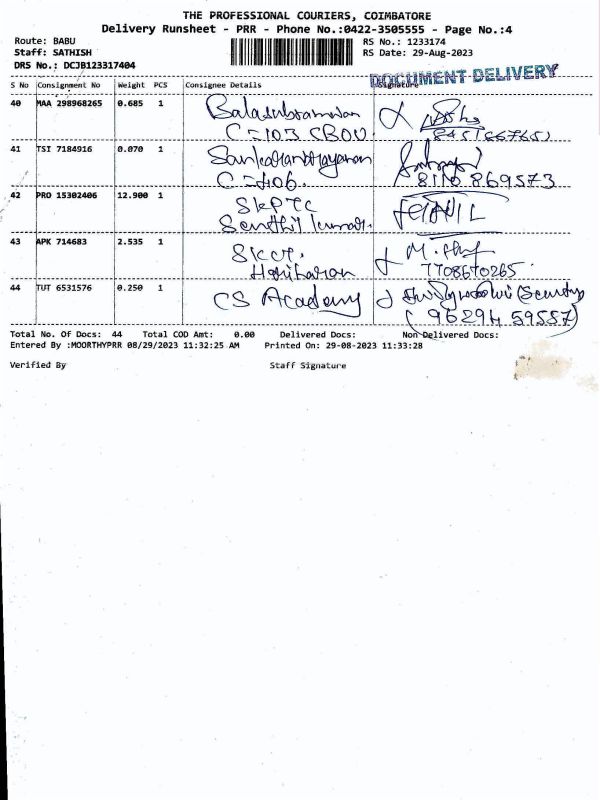 THE PROFESSIONAL COURIERS, COIMBATORE
Delivery Runsheet - PRR - Phone No.:0422-3505555 - Page No.:4
Route: BABU
RS No.: 1233174
Staff: SATHISH
RS Date: 29-Aug-2023
DRS No.: DCJB123317404
DOCUMENT DELIVERY
S No Consignment No Weight PCS Consignee Details Signature
40 MAA 298968265 0.685 1 Balasubramanian
C-103 CBOU
41 TSI 7184916 0.070 1 Sankaranarayanan
C-406. 8110 869573
42 PRO 15302406 12.900 1 SKPTC
Senthil kumar.
43 APK 714683 2.535 1 SKCT. M.
Hariharan 7708670265
44 TUT 6531576 0.250 1 CS Academy (Security
(96294 59557)
Total No. Of Docs: 44 Total COD Amt: 0.00 Delivered Docs: Non Delivered Docs:
Entered By :MOORTHYPRR 08/29/2023 11:32:25 AM Printed On: 29-08-2023 11:33:28
Verified By Staff Signature